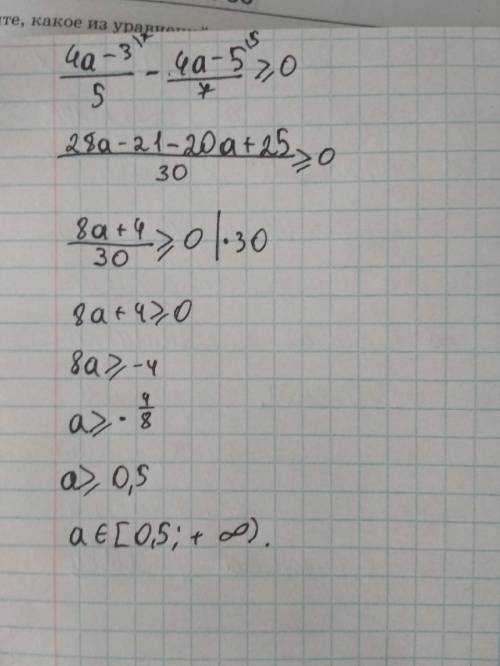 те, какое из уравнений
(4a-3)/5 |7 - (4a-5)/7 |5 ⩾0
(28a-21-20a+25)/30 ⩾0
(8a+4)/30 ⩾0 |·30
8a+4⩾0
8a⩾-4
a⩾-4/8
a⩾ 0,5
a∈[0,5;+∞).